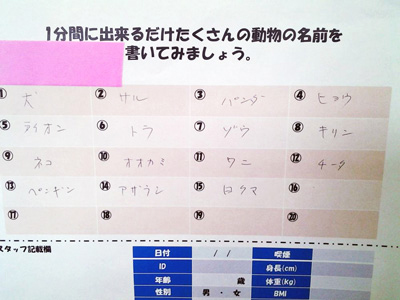 1分間に出来るだけたくさんの動物の名前を
書いてみましょう。
① 犬 ② サル ③ パンダ ④ ヒョウ
⑤ ライオン ⑥ トラ ⑦ ゾウ ⑧ キリン
⑨ ネコ ⑩ オオカミ ⑪ ワニ ⑫ チータ
⑬ ペンギン ⑭ アザラシ ⑮ 白クマ ⑯
⑰ ⑱ ⑲ ⑳
スタッフ記載欄
日付 / / 喫煙
ID 身長(cm)
年齢 歳 体重(Kg)
性別 男・女 BMI